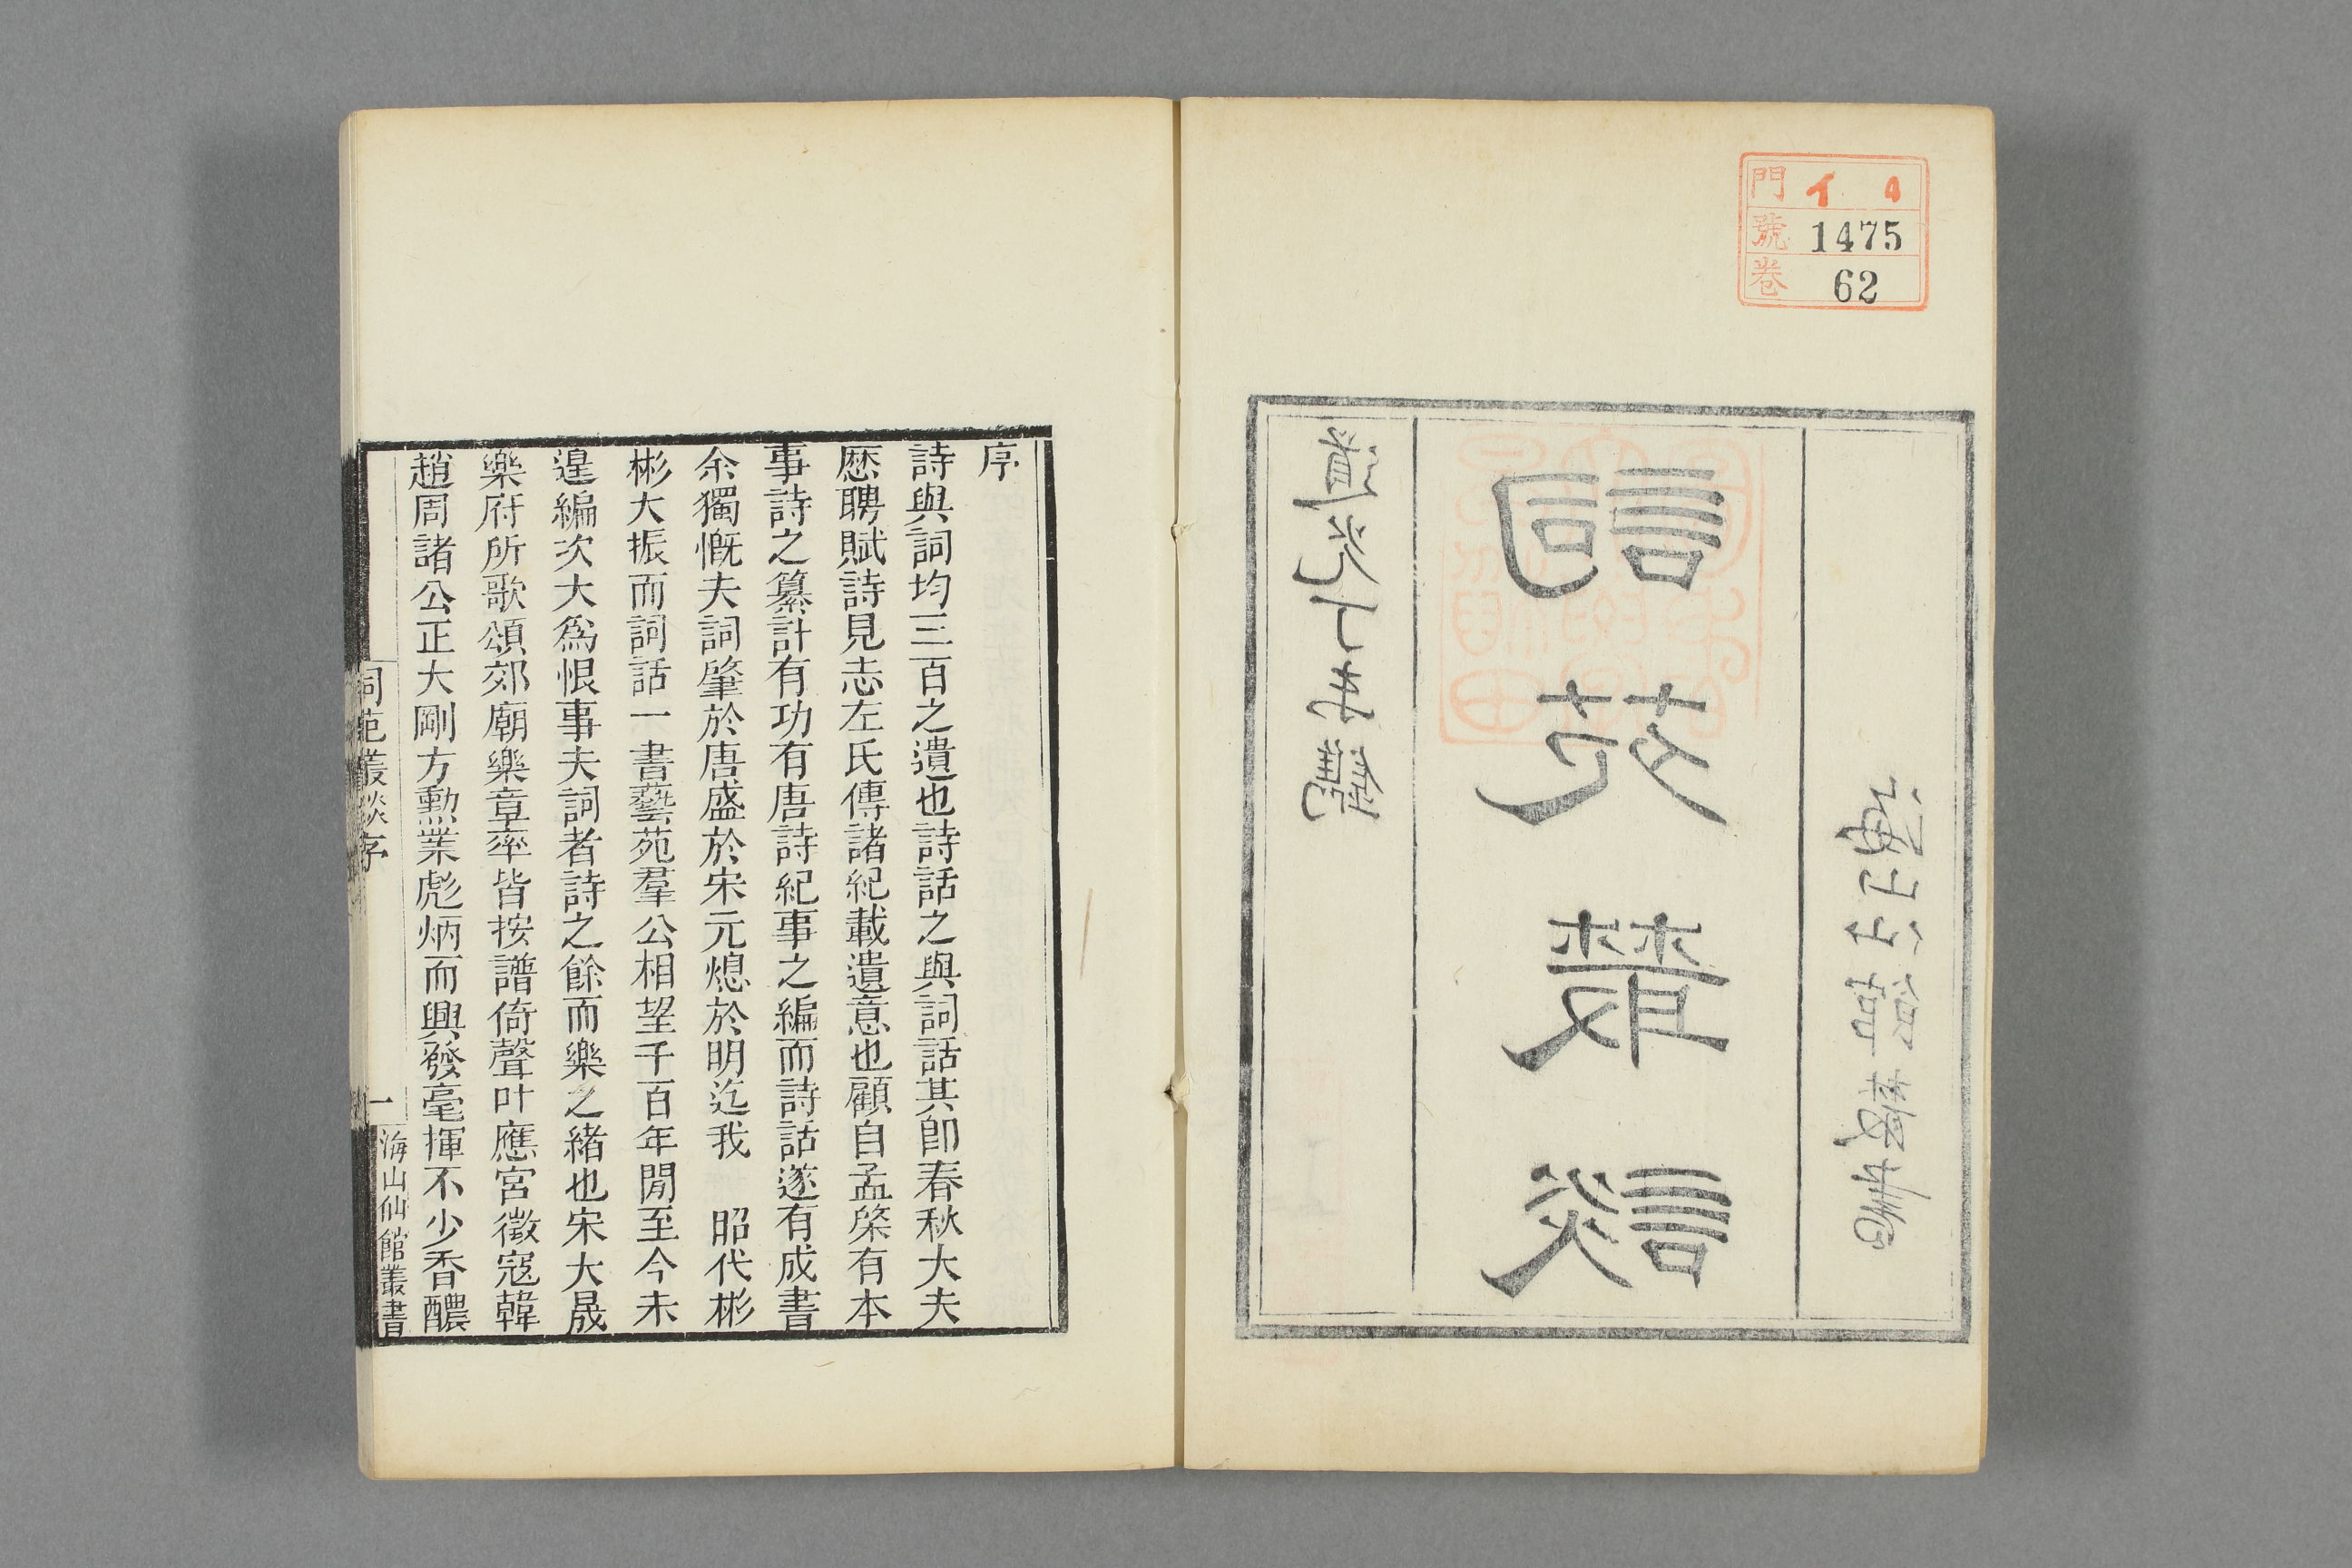 門 イ 4
號 1475
卷 62
詞苑叢談
序
詩與詞均三百之遺也詩話之與詞話其卽春秋大夫
歷聘賦詩見志左氏傳諸紀載遺意也顧自孟棨有本
事詩之纂計有功有唐詩紀事之編而詩話遂有成書
余獨慨夫詞肇於唐盛於宋元熄於明迄我 昭代彬
彬大振而詞話一書藝苑羣公相望千百年閒至今未
遑編次大爲恨事夫詞者詩之餘而樂之緒也宋大晟
樂府所歌頌郊廟樂章率皆按譜倚聲叶應宮徵寇韓
趙周諸公正大剛方勳業彪炳而興發毫揮不少香醲
詞苑叢談序
一
海山仙館叢書